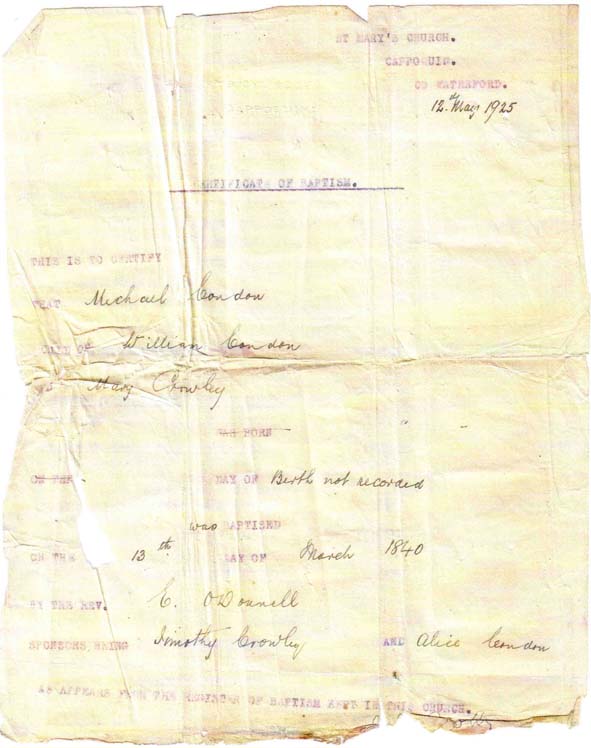 ST MARY'S CHURCH.
CAPPOQUIN.
CO WATERFORD.
12th May 1925
CAPPOQUIN
CERTIFICATE OF BAPTISM.
THIS IS TO CERTIFY
THAT Michael Condon
CHILD OF William Condon
Mary Crowley
WAS BORN
ON THE DAY OF Berth not recorded
was BAPTISED
ON THE 13th DAY OF March 1840
BY THE REV. C. O'Donnell
SPONSORS BEING Timothy Crowley AND Alice Condon
AS APPEARS FROM THE REGISTER OF BAPTISM KEPT IN THIS CHURCH.